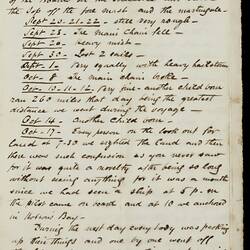 the top off the fore mast and the martingale -
Sept 20-21-22 - still very rough -
Sept 23 - The main chain fell -
Sept 20 - Heavy mist -
Sept 30 - Lost 2 sails
Oct 1 - Very squally with heavy hailstorm
Oct - 8 - The main chain broke -
Oct 10-11-12 - Very fine - another child born
ran 260 miles that day being the greatest
distance we went during the voyage -
Oct 14 - Another child born -
Oct - 17 - Every person on the look out for
Land at 7-30 we sighted the Land and then
there was such confusion as you never saw
for it was quite a novelty after being so long
without seeing anything for it was a month
since we had seen a ship at 8 p.m.
the Pilot came on board and at 10 we anchored
in Hobsons Bay -
During the next day every body was packing
up their things and one by one went off